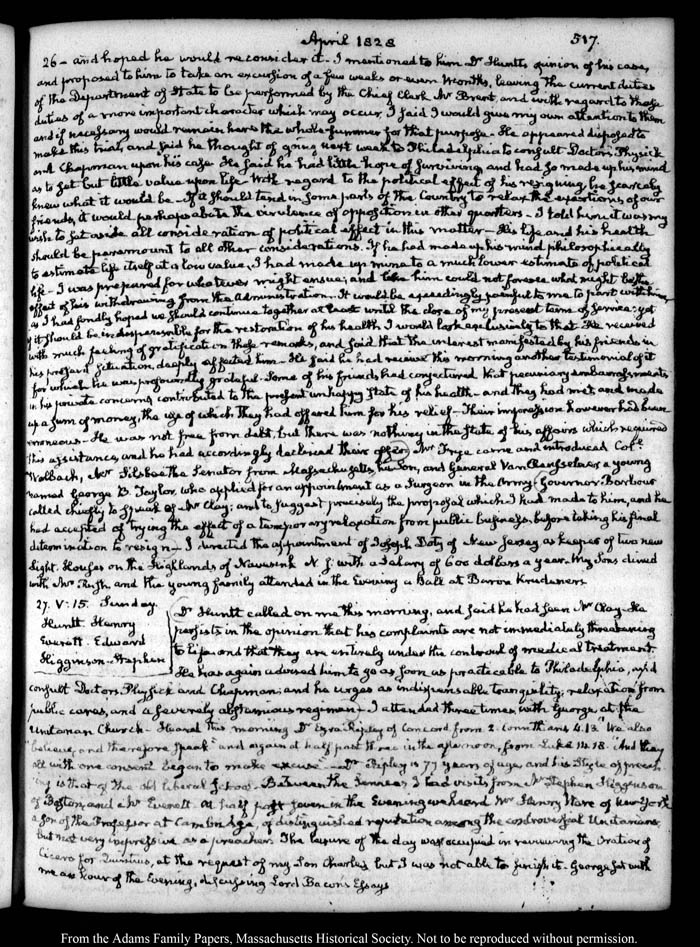 April 1828
517.
26 – and hoped he would reconsider it – I mentioned to him Dr Huntt's opinion of his case,
and proposed to him to take an excursion of a few weeks or even months, leaving the current duties
of the Department of State to be performed by the Chief Clerk Mr Brent, and with regard to those
duties of a more important character which may occur, I said I would give my own attention to them
and if necessary would remain here the whole summer for that purpose – He appeared disposed to
make this trial, and said he thought of going next week to Philadelphia to consult Doctors Physick
and Chapman upon his case. He said he had little hope of surviving and had so made up his mind
as to set but little value upon life. With regard to the political effect of his resigning he scarcely
knew what it would be – If it should tend in some parts of the Country to relax the exertions of our
friends, it would perhaps abate the virulence of opposition in other quarters – I told him it was my
wish to set aside all consideration of political effect in this matter – His life and his health
should be paramount to all other considerations. If he had made up his mind philosophically
to estimate life itself at a low value, I had made up mine to a much lower estimate of political
life – I was prepared for whatever might ensue; and like him could not foresee what might be the
effect of his withdrawing from the Administration – It would be exceedingly painful to me to part with him
as I had fondly hoped we should continue together at least until the close of my present term of service; yet
if it should be indispensable for the restoration of his health, I would look exclusively to that. He received
with much feeling of gratification these remarks, and said that the interest manifested by his friends in
his present situation, deeply affected him – He said he had receive this morning another testimonial of it
for which he was profoundly grateful. Some of his friends had conjectured that pecuniary embarrassments
in his private concerns contributed to the present unhappy state of his health – and they had met, and made
up a sum of money, the use of which they had offered him for his relief – Their impression however had been
erroneous – He was not free from debt, but there was nothing in the state of his affairs which required
this assistance, and he had accordingly declined their offer. Mr Frye came and introduced Coll.
Wolbach, Mr Silsbee the Senator from Massachusetts, his Son, and General Van Rensselaer a young
named George B. Taylor, who applied for an appointment as a Surgeon in the Army. Governor Barbour
called chiefly to speak of Mr Clay; and to suggest precisely the proposal which I had made to him, and he
had accepted of trying the effect of a temporary relaxation from public business, before taking his final
determination to resign – I directed the appointment of Joseph Doty of New Jersey as keeper of two new
Light Houses on the Highlands of Navesink N. J. with a Salary of 600 dollars a year. My Sons dined
with Mr Rush, and the young family attended in the Evening a Ball at Baron Krudeners
27. V: 15. Sunday
Huntt Henry
Everett. Edward
Higginson. Stephen
Dr Huntt called on me this morning, and said he had seen Mr Clay – He
persists in the opinion that his complaints are not immediately threatening
to life and that they are entirely under the controul of medical treatment.
He has again advised him to go as soon as practicable to Philadelphia, and
consult Doctors Physick and Chapman; and he urges as indispensable tranquility, relaxation from
public cares, and a severely abstemious regimen – I attended three times with George at the
Unitarian Church – Heard this morning Dr Ezra Ripley of Concord from 2. Corinthians 4.13 "We also
believe, and therefore speak" and again at half past three in the afternoon, from Luke 14.18. "And they
all with one consent began to make excuse" – Dr Ripley is 77 years of age, and his style of preach
ing is that of the old liberal School – Between the services I had visits from Mr Stephen Higginson
of Boston, and Mr Everett. At half past seven in the Evening we heard Mr Henry Ware of New York
a son of the Professor at Cambridge, of distinguished reputation among the controversial Unitarians
but not very impressive as a preacher. The leisure of the day was occupied in reviewing the Oration of
Cicero for Quintius, at the request of my Son Charles, but I was not able to finish it. George sat with
me an hour of the Evening, discussing Lord Bacon's Essays
From the Adams Family Papers, Massachusetts Historical Society. Not to be reproduced without permission.